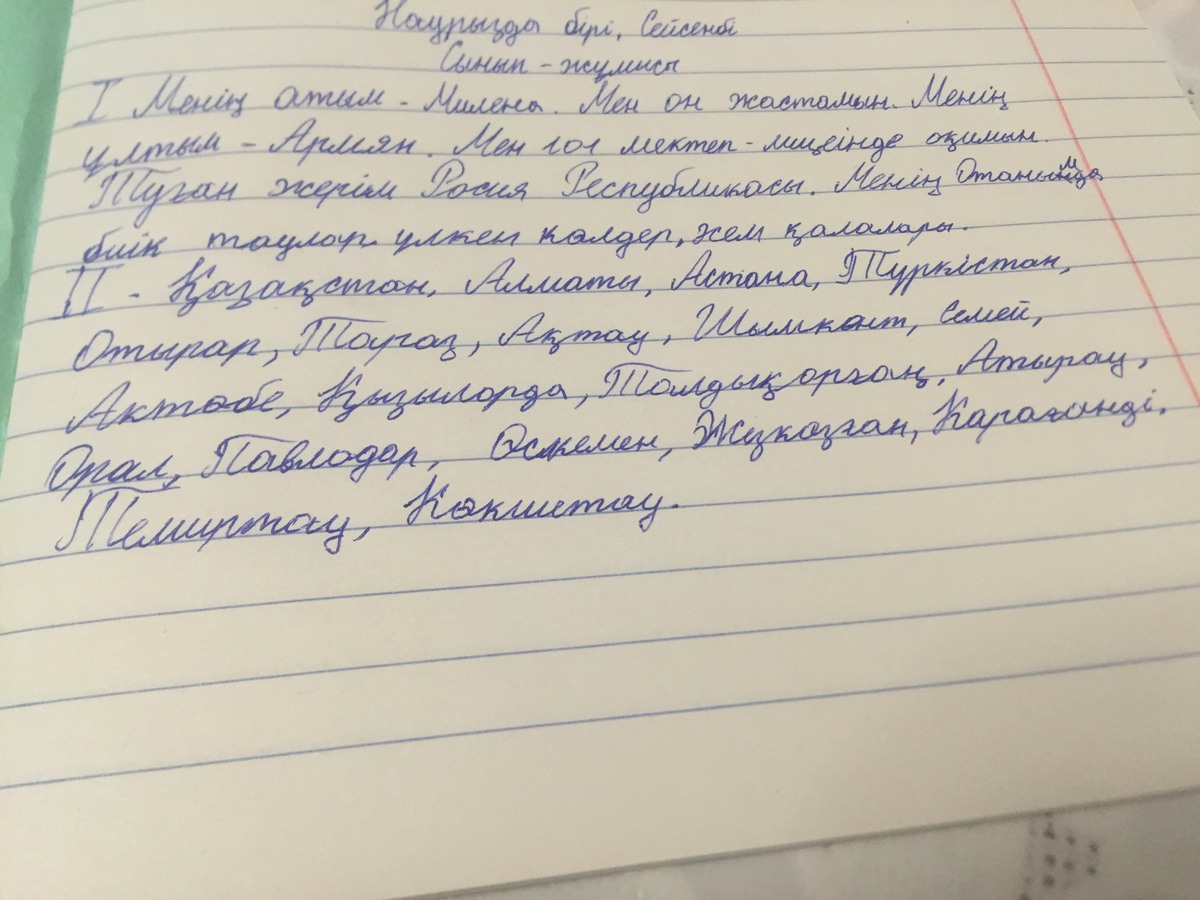 Наурызда бірі, Сейсенбі
Сынып - жұмысы
I Менің атым - Милена. Мен он жастамын. Менің
ұлтым - Армян. Мен 101 мектеп - лицеінде оқимын.
Туған жерім Росия Республикасы. Менің Отанымда
биік таулар. үлкен көлдер, жем қалалары.
II - Қазақстан, Алматы, Астана, Түркістан,
Отырар, Тараз, Ақтау, Шымкент, Семей,
Актөбе, Қызылорда, Талдықорғаң, Атырау,
Орал, Павлодар, Өскемен, Жезказған, Карағанді,
Темиртау, Көкшетау.